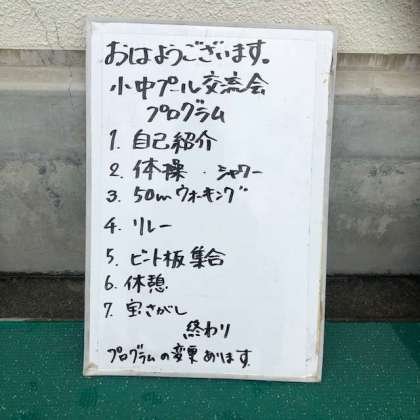 おはようございます。
小中プール交流会
プログラム
1. 自己紹介
2. 体操・シャワー
3. 50mウォーキング
4. リレー
5. ビート板集合
6. 休憩
7. 宝さがし
終わり
プログラムの変更あります。